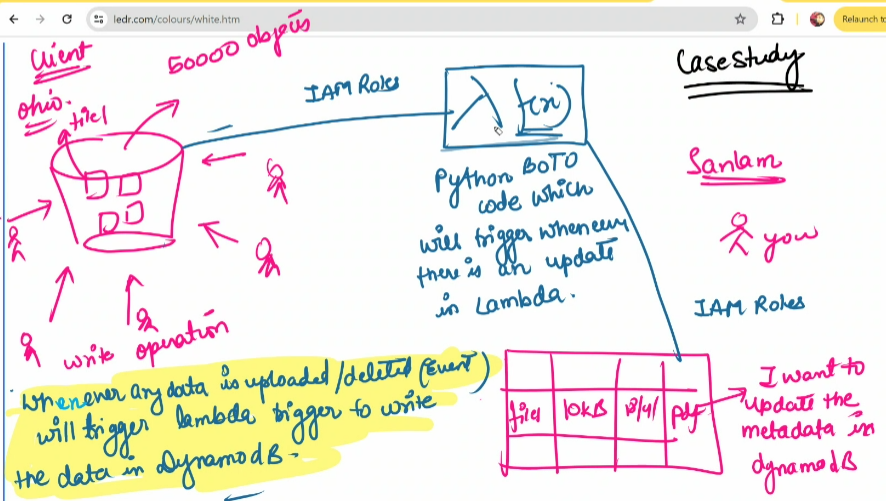 ledr.com/colours/white.htm
Relaunch to
Client
Ohio.
file1
50000 objects
IAM Roles
f(x)
Case study
Sanlam
you
Python BOTO
code which
will trigger whenever
there is an update
in Lambda.
IAM Roles
write operation
Whenever any data is uploaded/deleted (Event)
will trigger lambda trigger to write
the data in DynamodB.
file1 10kB 13/4/ pdf
I want to
update the
metadata in
dynamodB